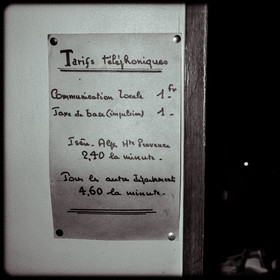 Tarifs téléphoniques
Communication Locale 1 Fr
Taxe de base (impulsion) 1 -
Isère - Alpe Hte Provence
2,40 la minute.
Pour les autre département
4,60 la minute.